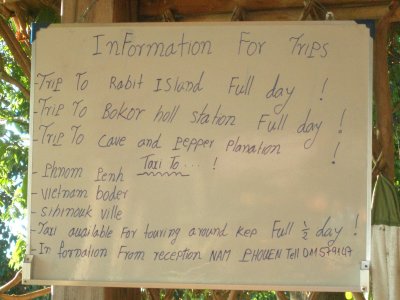 InFormation For Trips
-Trip To Rabit ISland Full day !
-Trip To Bokor holl station Full day !
-Trip To Cave and Pepper Planation !
Taxi To ... !
-Phnom Penh
-vietnam boder
-sihinouk ville
-Taxi available For touring around kep Full ½ day !
-In formation From reception NAM PHOUEN Tell